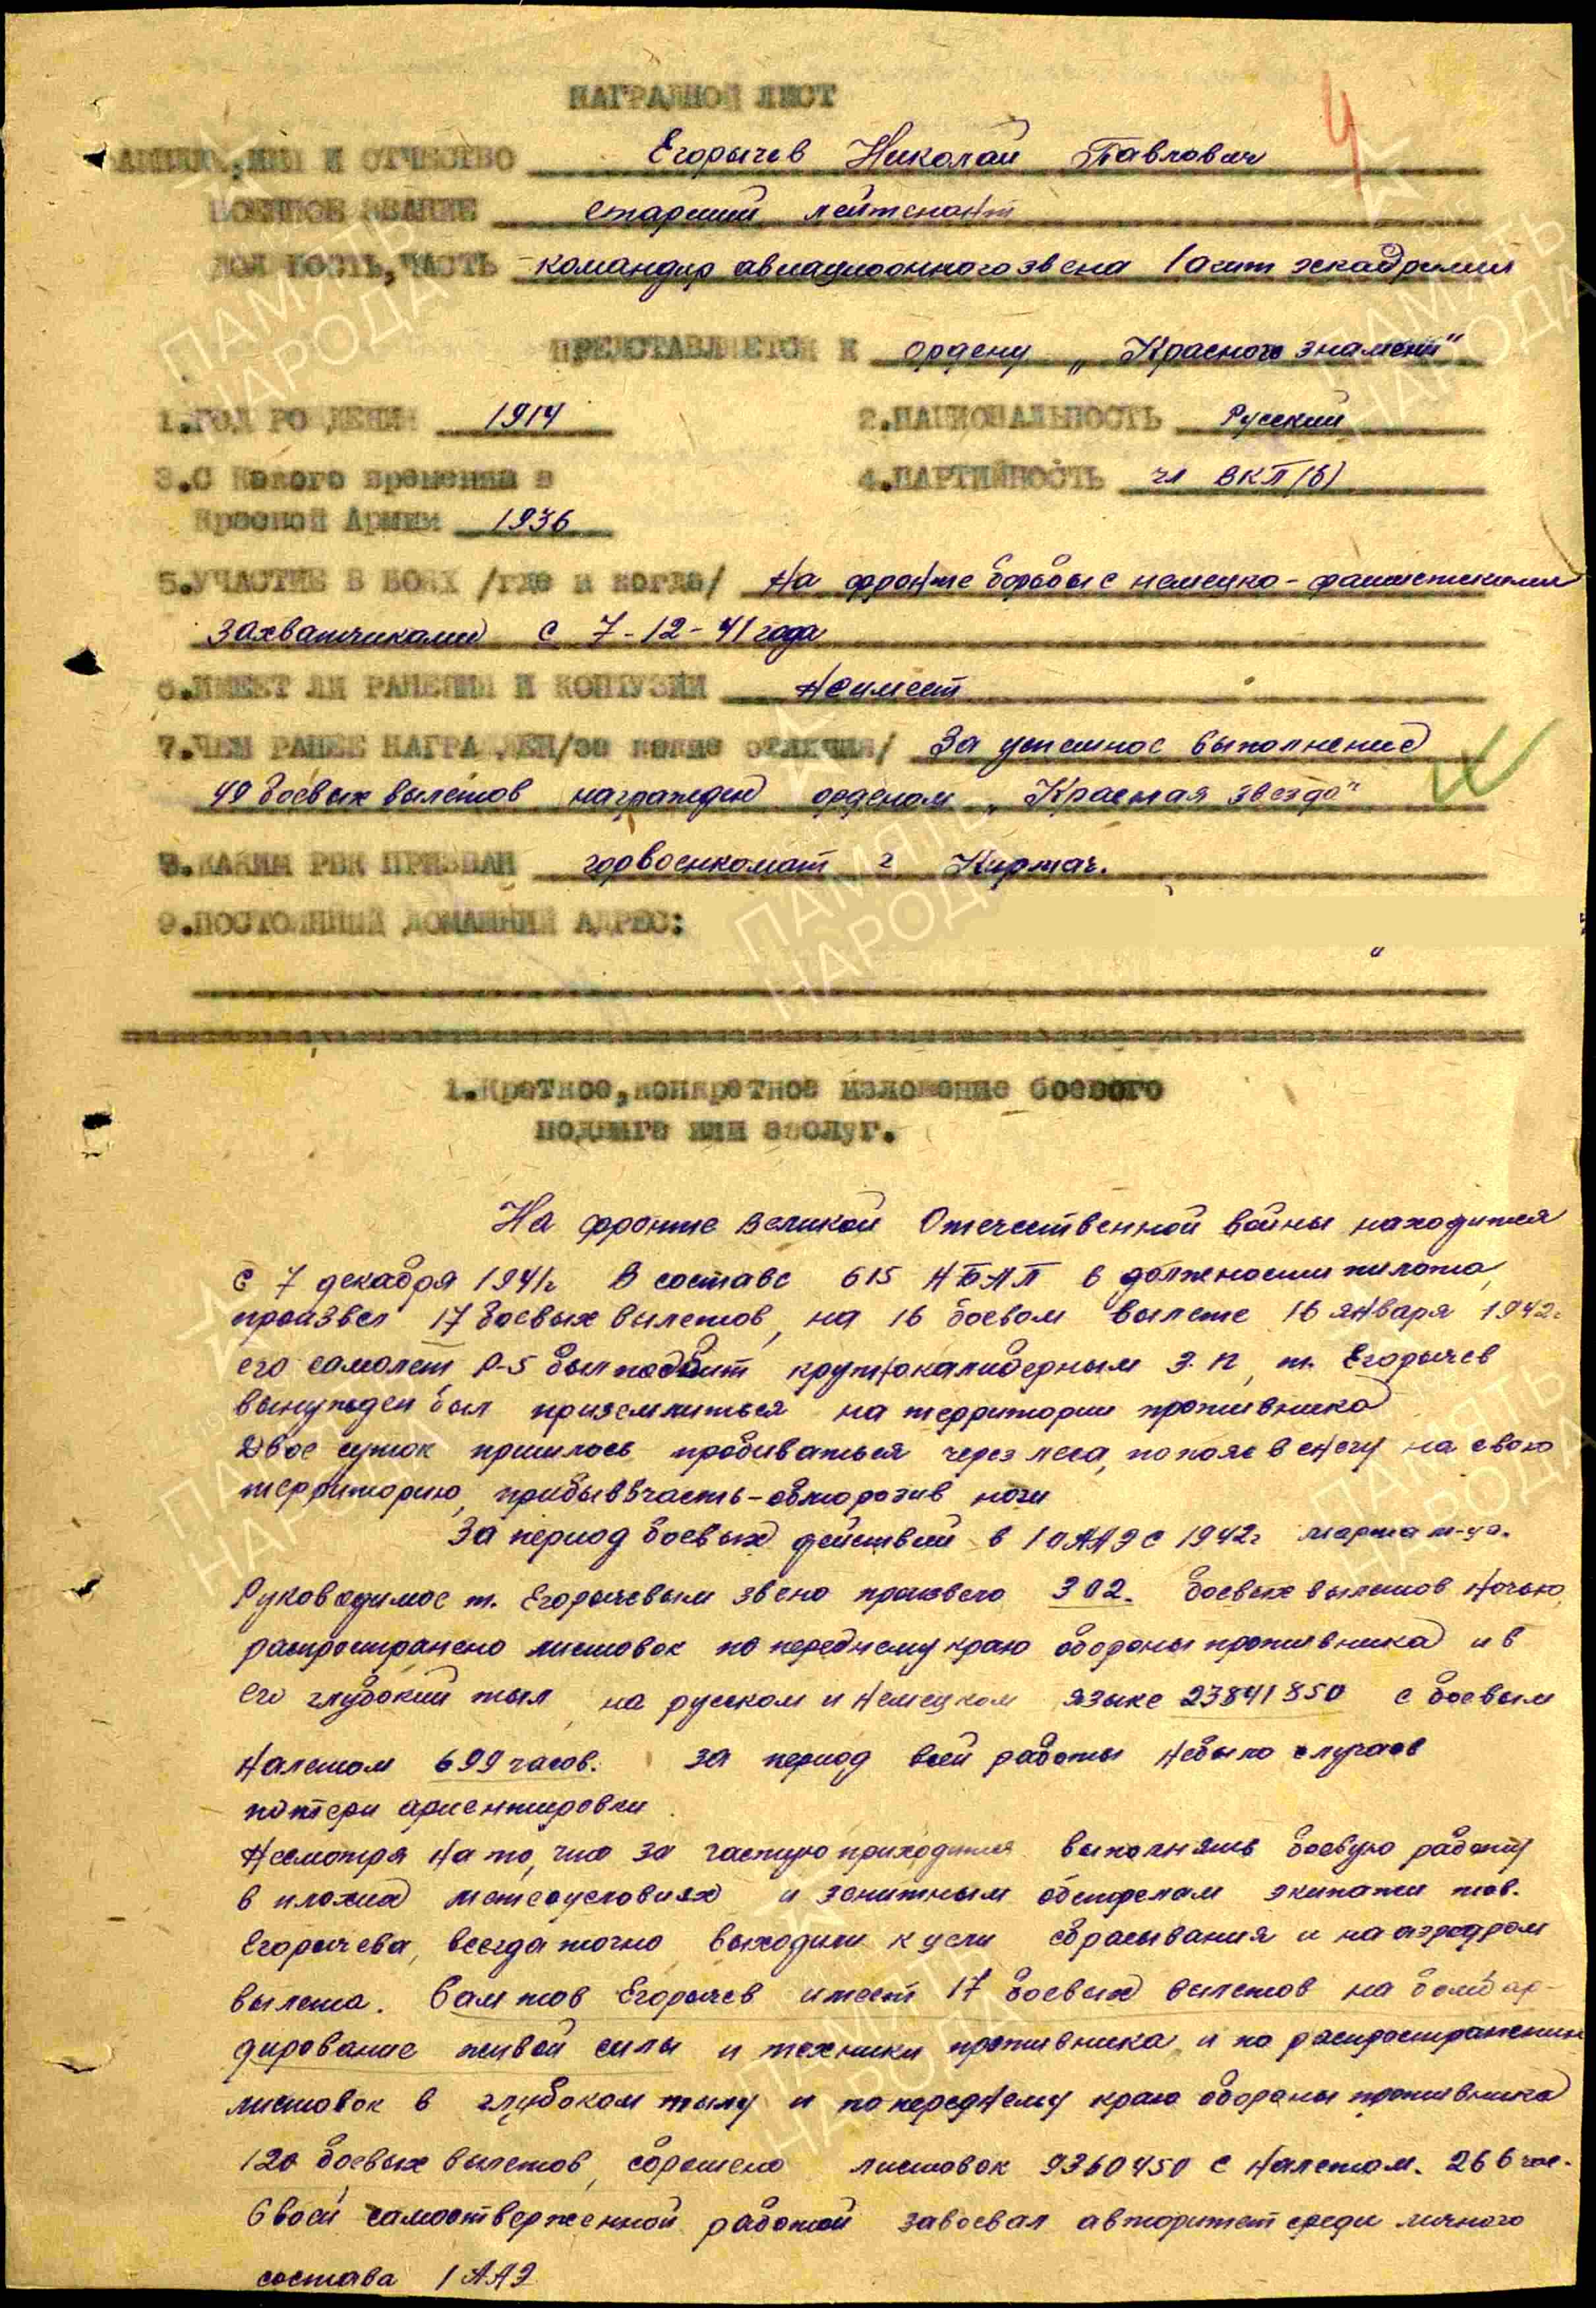 НАГРАДНОЙ ЛИСТ
ФАМИЛИЯ, ИМЯ И ОТЧЕСТВО Егорычев Николай Павлович
ВОЕННОЕ ЗВАНИЕ старший лейтенант
ДОЛЖНОСТЬ, ЧАСТЬ командир авиационного звена 1 агит эскадрильи
ПРЕДСТАВЛЯЕТСЯ К ордену „Красного знамени"
1.ГОД РОЖДЕНИЯ 1914 2.НАЦИОНАЛЬНОСТЬ Русский
3.С какого времени в 4.ПАРТИЙНОСТЬ чл ВКП(б)
Красной Армии 1936
5.УЧАСТИЕ В БОЯХ /где и когда/ На фронте борьбы с немецко-фашистскими
захватчиками с 7-12-41 года
6.ИМЕЕТ ЛИ РАНЕНИЯ И КОНТУЗИИ Не имеет
7.ЧЕМ РАНЕЕ НАГРАЖДЕН/за какие отличия/ За успешное выполнение
49 боевых вылетов награжден орденом „Красная звезда"
8.КАКИМ РВК ПРИЗВАН горвоенкомат г Киржач.
9.ПОСТОЯННЫЙ ДОМАШНИЙ АДРЕС:
1.Краткое,конкретное изложение боевого
подвига или заслуг.
На фронте Великой Отечественной войны находится
с 7 декабря 1941г. В составе 615 НБАП в должности пилота
произвел 17 боевых вылетов, на 16 боевом вылете 16 января 1942г
его самолет Р-5 был подбит крупнокалиберным З.П, т. Егорычев
вынужден был приземлиться на территории противника
Двое суток пришлось пробиваться через леса, по пояс в снегу на свою
территорию, прибыв в часть-обморозив ноги
За период боевых действий в 1 ОААЭ с 1942г марта м-ца.
Руководимое т. Егорычевым звено произвело 302. боевых вылетов ночью,
распространено листовок по переднему краю обороны противника и в
его глубокий тыл, на русском и немецком языке 23841850 с боевым
налетом 699 часов. За период всей работы не было случаев
потери ориентировки
Несмотря на то, что за частую приходится выполнять боевую работу
в плохих метеоусловиях и зенитным обстрелам экипажи тов.
Егорычева, всегда точно выходили к цели сбрасывания и на аэродром
вылета. Сам тов Егорычев имеет 17 боевых вылетов на бомбар-
дирование живой силы и техники противника и по распространению
листовок в глубоком тылу и по переднему краю обороны противника
120 боевых вылетов, сброшено листовок 9360450 с налетом. 266 час.
Своей самоотверженной работой завоевал авторитет среди личного
состава 1 ААЭ